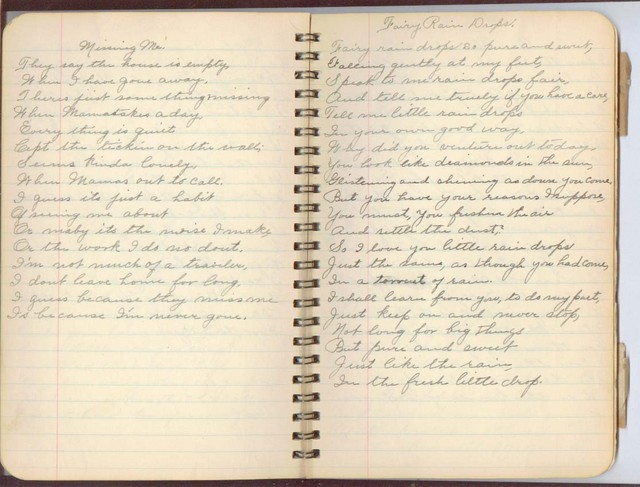 Missing Me
They say the house is empty,
When I have gone away.
Theres just some thing missing
When Mama takes a day,
Every thing is quiet
Cept the tickin on the wall;
Seems kinda lonely,
When Mamas out to call.
I guess its just a habit
Of seeing me about
Or maby its the noise I make,
Or the work I do no dout.
I'm not much of a traveler,
I dont leave home for long,
I guess because they miss me
Is because I'm never gone.
Fairy Rain Drops.
Fairy rain drops so pure and sweet,
Falling gently at my feet,
Speak to me rain drops fair,
And tell me truely if you have a care,
Tell me little rain drops
In your own good way,
Why did you venture out today.
You look like deamonds in the sun,
Glistening and shining as down you come,
But you have your reasons I suppose,
You must, you freshen the air
And settle the dust.
So I love you little rain drops
Just the same, as though you had come,
In a torrent of rain.
I shall learn from you, to do my part,
Just keep on and never stop,
Not long for big things
But pure and sweet
Just like the rain,
In the fresh little drop.